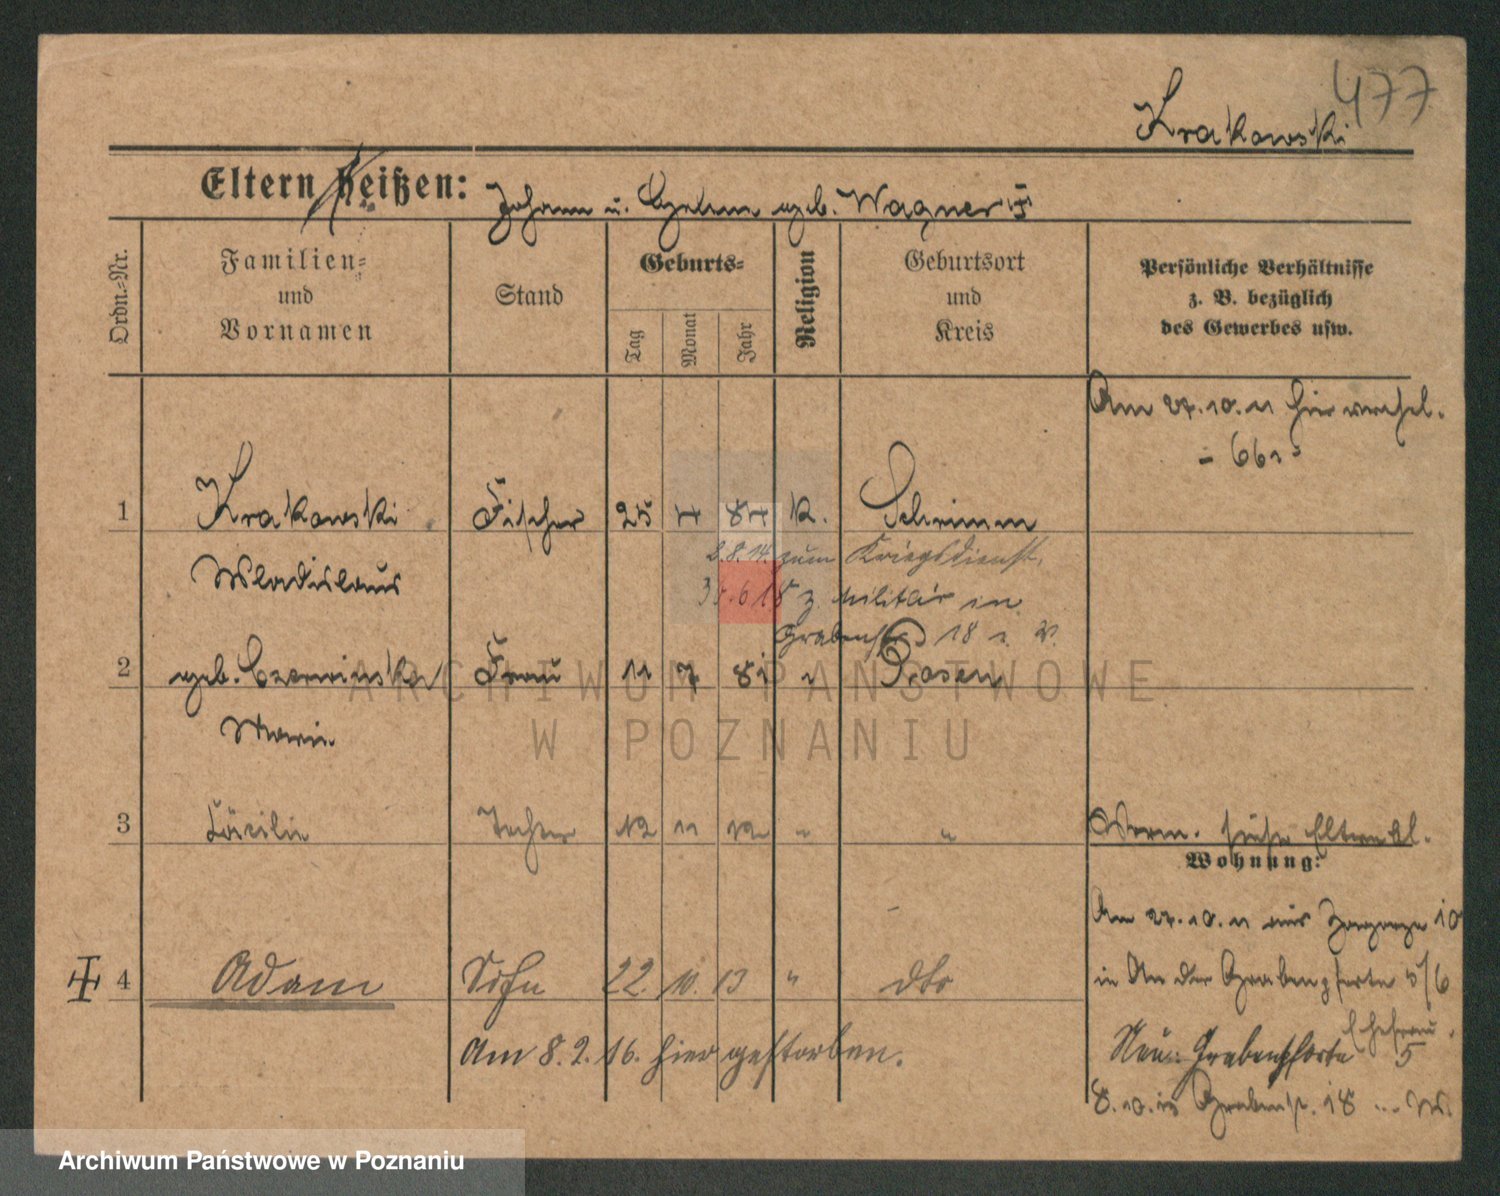 477
Krakowski
Eltern heißen: Johann u. geb. Wagner
Ordn.-Nr.
Familien- und Vornamen
Stand
Geburts-
Tag
Monat
Jahr
Religion
Geburtsort und Kreis
Persönliche Verhältnisse
z. B. bezüglich
des Gewerbes usw.
Am 27.10.11 hier
1 Krakowski Fischer 25 7 87 k. Schrimm
Wladislaus
2.8.14. zum Kriegsdienst.
z Militär in
18
2 geb. Czerwinska Frau 11 7 81 " Posen
Marie
3 Cäcilie Tochter 12 11 12 " "
siehe Eltern bl.
Wohnung:
Am 27.10.11 aus 10
in An der Grabenpforte 5/6
4 Adam Sohn 22. 10. 13 " dto
Ehefrau
Am 8.2.16. hier gestorben.
Neu: Grabenpforte 5
8.10.15 Grabenstr. 18
ARCHIWUM PAŃSTWOWE
W POZNANIU
Archiwum Państwowe w Poznaniu